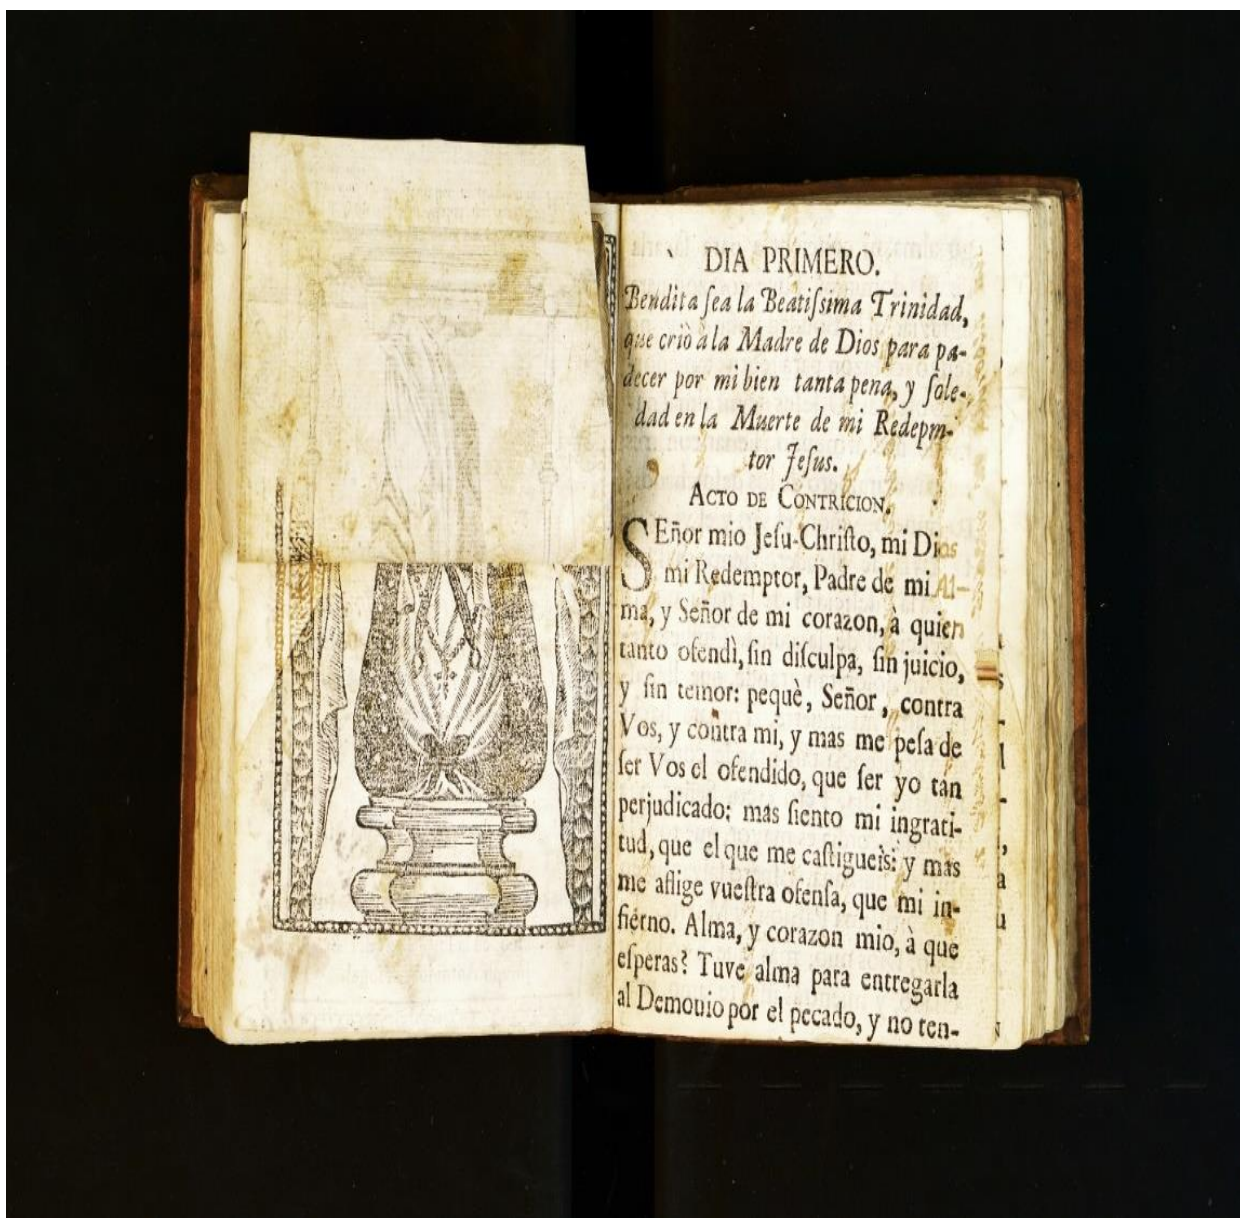 DIA PRIMERO.
Bendita ſea la Beatiſsima Trinidad,
que criò à la Madre de Dios para pa-
decer por mi bien tanta pena, y ſole-
dad en la Muerte de mi Redepm-
tor Jeſus.
ACTO DE CONTRICION.
SEñor mio Jeſu-Chriſto, mi Dios
mi Redemptor, Padre de mi Al-
ma, y Señor de mi corazon, à quien
tanto ofendì, ſin diſculpa, ſin juicio,
y ſin temor: pequè, Señor, contra
Vos, y contra mi, y mas me peſa de
ſer Vos el ofendido, que ſer yo tan
perjudicado; mas ſiento mi ingrati-
tud, que el que me caſtigueis: y mas
me aflige vueſtra ofenſa, que mi in-
fierno. Alma, y corazon mio, à que
eſperas? Tuve alma para entregarla
al Demouio por el pecado, y no ten-